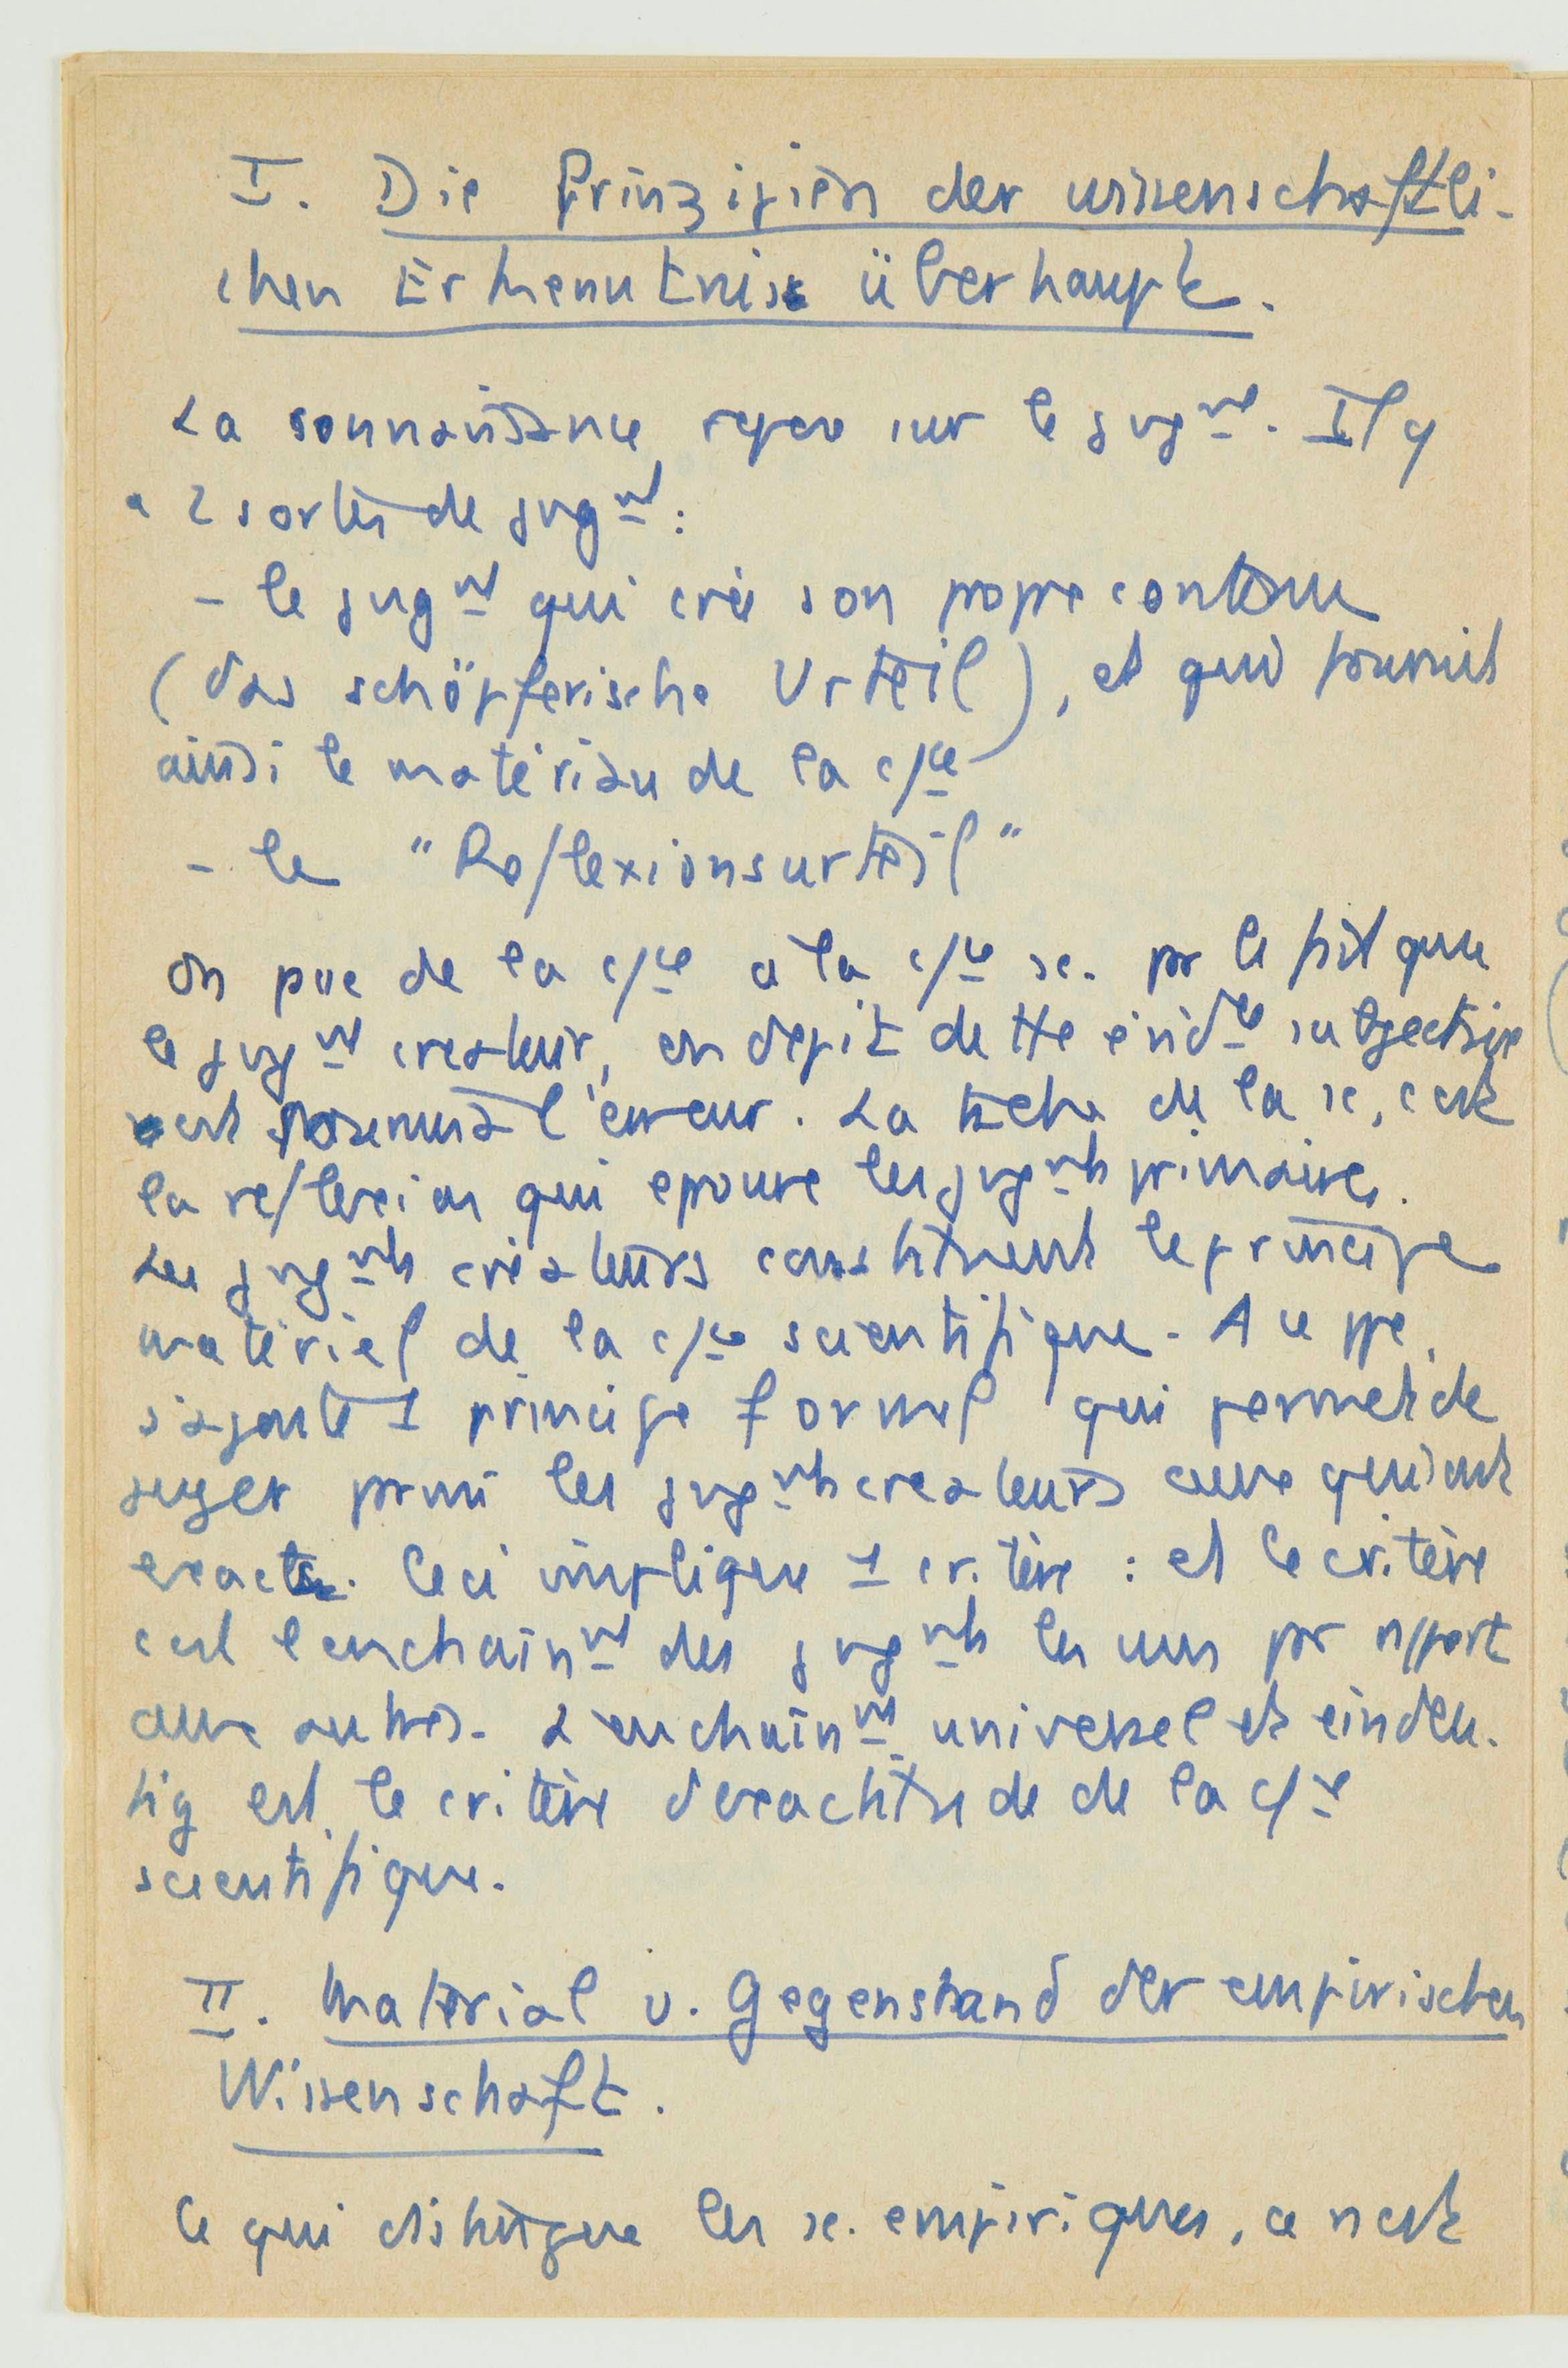 I. Die Prinzipien der wissenschaftli-
chen Erkenntnis überhaupt.
La connaissance repose sur le jugmt. Il y
a 2 sortes de jugmt :
- le jugmt qui crée son propre contenu
(das schöpferische Urteil), et qui fournit
ainsi le matériau de la c/ce
- le "Reflexionsurteil"
On passe de la c/ce à la c/ce sc. par le fait que
le jugmt createur, en depit de tte évidce subjective
est l'erreur. La tâche de la sc, c'est
la reflexion qui eprouve les jugmts primaires.
Les jugmts créateurs constituent le principe
matériel de la c/ce scientifique. A ce ppe,
s'ajoute 1 principe formel qui permet de
juger parmi les jugmts createurs ceux qui sont
exacts. Ceci implique 1 critère : et le critère
c'est l'enchainmt des jugmts les uns par rapport
aux autres. L'enchaînmt universel et eindeu-
tig est le critère d'exactitude de la c/ce
scientifique.
II. Material u. Gegenstand der empirischen
Wissenschaft.
Ce qui distingue les sc. empiriques, ce n'est